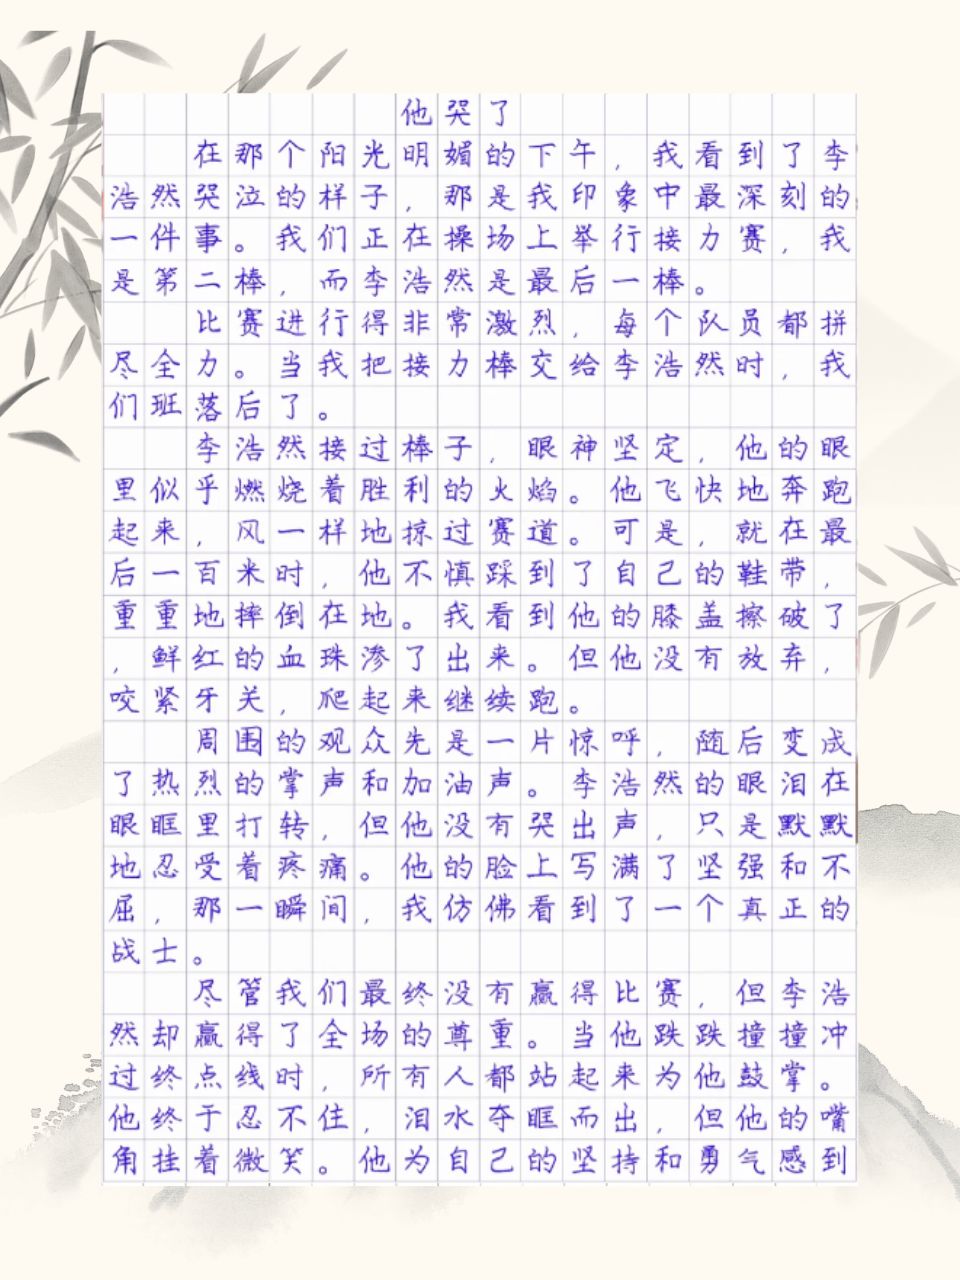 他哭了
在那个阳光明媚的下午，我看到了李
浩然哭泣的样子，那是我印象中最深刻的
一件事。我们正在操场上举行接力赛，我
是第二棒，而李浩然是最后一棒。
比赛进行得非常激烈，每个队员都拼
尽全力。当我把接力棒交给李浩然时，我
们班落后了。
李浩然接过棒子，眼神坚定，他的眼
里似乎燃烧着胜利的火焰。他飞快地奔跑
起来，风一样地掠过赛道。可是，就在最
后一百米时，他不慎踩到了自己的鞋带，
重重地摔倒在地。我看到他的膝盖擦破了
，鲜红的血珠渗了出来。但他没有放弃，
咬紧牙关，爬起来继续跑。
周围的观众先是一片惊呼，随后变成
了热烈的掌声和加油声。李浩然的眼泪在
眼眶里打转，但他没有哭出声，只是默默
地忍受着疼痛。他的脸上写满了坚强和不
屈，那一瞬间，我仿佛看到了一个真正的
战士。
尽管我们最终没有赢得比赛，但李浩
然却赢得了全场的尊重。当他跌跌撞撞冲
过终点线时，所有人都站起来为他鼓掌。
他终于忍不住，泪水夺眶而出，但他的嘴
角挂着微笑。他为自己的坚持和勇气感到